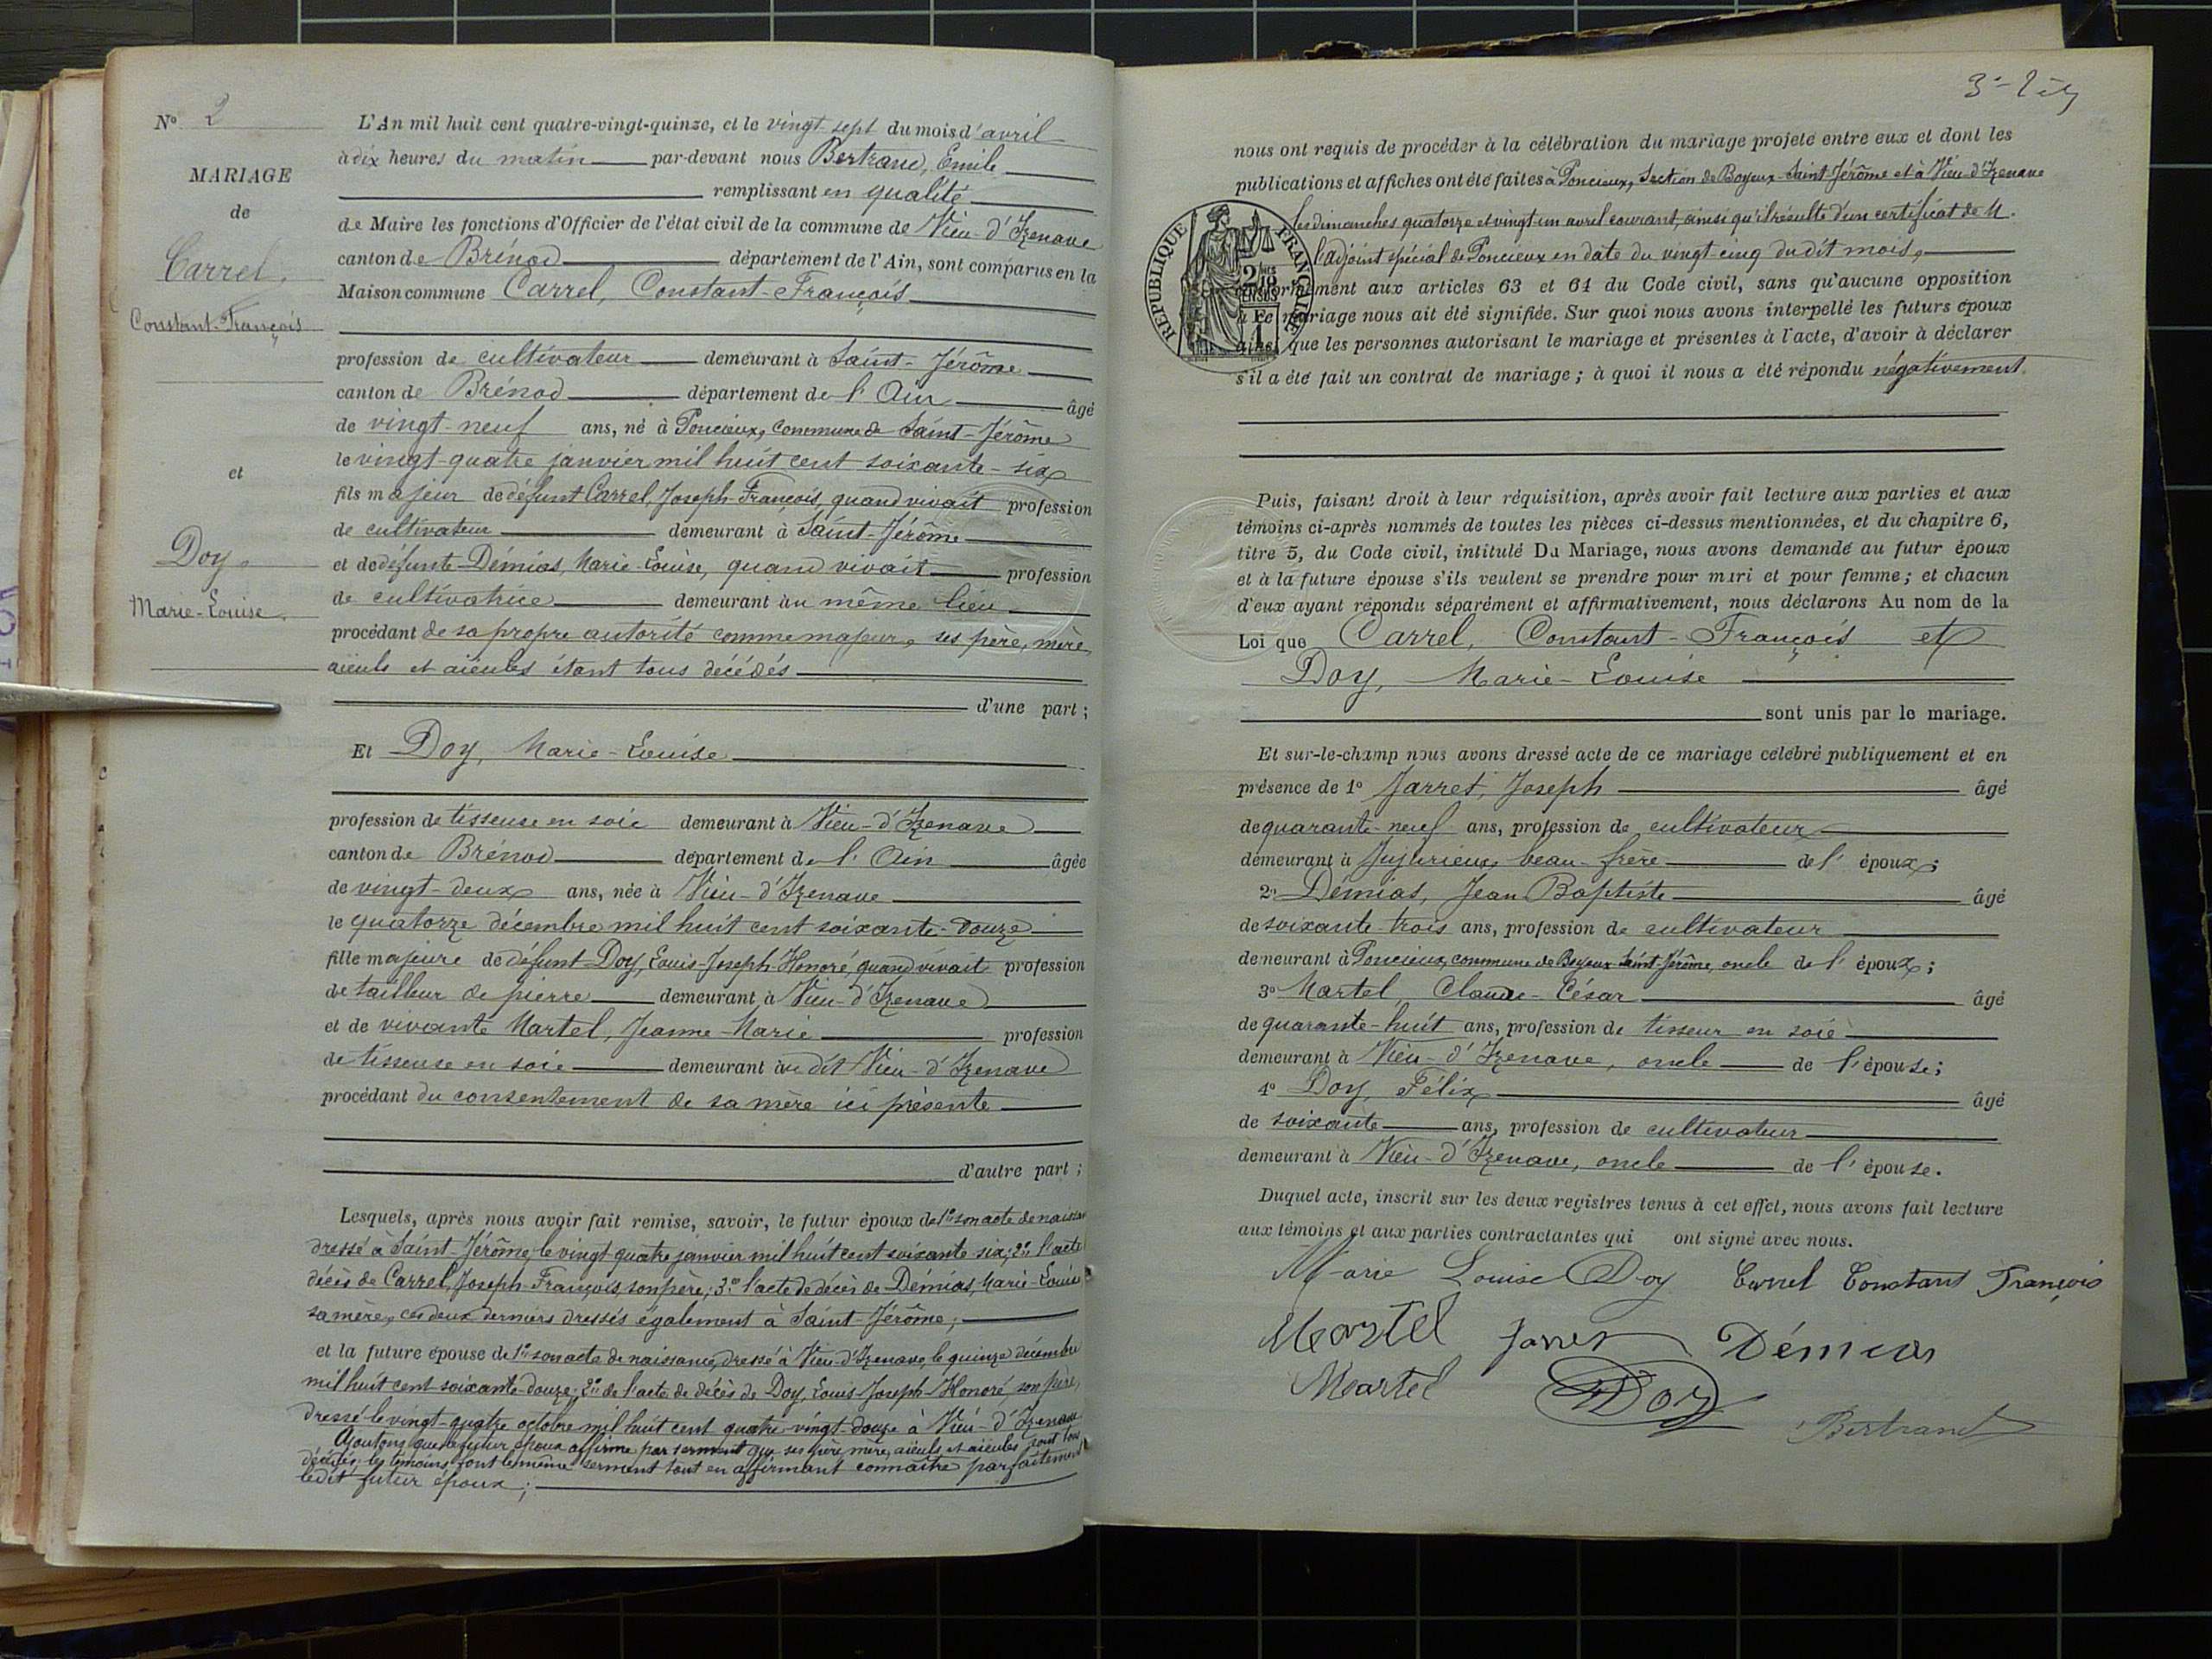 N° 2
MARIAGE
de
Carrel,
Constant-François
et
Doy,
Marie-Louise.
L'An mil huit cent quatre-vingt-quinze, et le vingt-sept du mois d'avril
à dix heures du matin par-devant nous Bertrand, Emile
remplissant en qualité
de Maire les fonctions d'Officier de l'état civil de la commune de Vieu-d'Izenave
canton de Brénod département de l'Ain, sont comparus en la
Maison commune Carrel, Constant-François
profession de cultivateur demeurant à Saint-Jérôme
canton de Brénod département de l'Ain âgé
de vingt-neuf ans, né à Poncieux, commune de Saint-Jérôme
le vingt-quatre janvier mil huit cent soixante-six
fils majeur de défunt Carrel, Joseph-François, quand vivait profession
de cultivateur demeurant à Saint-Jérôme
et de défunte Démias, Marie-Louise, quand vivait profession
de cultivatrice demeurant au même lieu
procédant de sa propre autorité comme majeur, ses père, mère,
aïeuls et aïeules étant tous décédés
d'une part ;
Et Doy, Marie-Louise
profession de tisseuse en soie demeurant à Vieu-d'Izenave
canton de Brénod département de l'Ain âgée
de vingt-deux ans, née à Vieu-d'Izenave
le quatorze décembre mil huit cent soixante-douze
fille majeure de défunt Doy, Louis-Joseph-Honoré, quand vivait profession
de tailleur de pierre demeurant à Vieu-d'Izenave
et de vivante Martel, Jeanne-Marie profession
de tisseuse en soie demeurant au dit Vieu-d'Izenave
procédant du consentement de sa mère ici présente
d'autre part ;
Lesquels, après nous avoir fait remise, savoir, le futur époux de 1° son acte de naissan
dressé à Saint-Jérôme, le vingt-quatre janvier mil huit cent soixante six; 2° l'acte
décès de Carrel, Joseph-François, son père; 3° l'acte de décès de Démias, Marie-Louise
sa mère, ces deux derniers dressés également à Saint-Jérôme;
et la future épouse de 1° son acte de naissance, dressé à Vieu-d'Izenave, le quinze décembre
mil huit cent soixante-douze; 2° de l'acte de décès de Doy, Louis-Joseph-Honoré, son père,
dressé le vingt-quatre octobre mil huit cent quatre-vingt-douze à Vieu-d'Izenave
Ajoutons que le futur époux affirme par serment que ses père, mère, aïeuls et aïeules sont tous
décédés; les témoins font le même serment tout en affirmant connaître parfaitement
ledit futur époux;
nous ont requis de procéder à la célébration du mariage projeté entre eux et dont les
publications et affiches ont été faites à Poncieux, section de Boyeux-Saint-Jérôme et à Vieu-d'Izenave
les dimanches quatorze et vingt-un avril courant, ainsi qu'il résulte d'un certificat de M.
l'adjoint spécial de Poncieux en date du vingt-cinq du dit mois,
conformément aux articles 63 et 64 du Code civil, sans qu'aucune opposition
à ce mariage nous ait été signifiée. Sur quoi nous avons interpellé les futurs époux
ainsi que les personnes autorisant le mariage et présentes à l'acte, d'avoir à déclarer
s'il a été fait un contrat de mariage ; à quoi il nous a été répondu négativement.
RÉPUBLIQUE FRANÇAISE
Puis, faisant droit à leur réquisition, après avoir fait lecture aux parties et aux
témoins ci-après nommés de toutes les pièces ci-dessus mentionnées, et du chapitre 6,
titre 5, du Code civil, intitulé Du Mariage, nous avons demandé au futur époux
et à la future épouse s'ils veulent se prendre pour mari et pour femme ; et chacun
d'eux ayant répondu séparément et affirmativement, nous déclarons Au nom de la
Loi que Carrel, Constant-François et
Doy, Marie-Louise
sont unis par le mariage.
Et sur-le-champ nous avons dressé acte de ce mariage célébré publiquement et en
présence de 1° Jarret, Joseph âgé
de quarante-neuf ans, profession de cultivateur
demeurant à Jujurieux, beau-frère de l'époux;
2° Démias, Jean Baptiste âgé
de soixante-trois ans, profession de cultivateur
demeurant à Poncieux, commune de Boyeux Saint-Jérôme, oncle de l'époux;
3° Martel, Claude-César âgé
de quarante-huit ans, profession de tisseur en soie
demeurant à Vieu-d'Izenave, oncle de l'épouse;
4° Doy, Félix âgé
de soixante ans, profession de cultivateur
demeurant à Vieu-d'Izenave, oncle de l'épouse.
Duquel acte, inscrit sur les deux registres tenus à cet effet, nous avons fait lecture
aux témoins et aux parties contractantes qui ont signé avec nous.
Marie Louise Doy Carrel Constant François
Martel Jarret Démias
Martel Doy
Bertrand